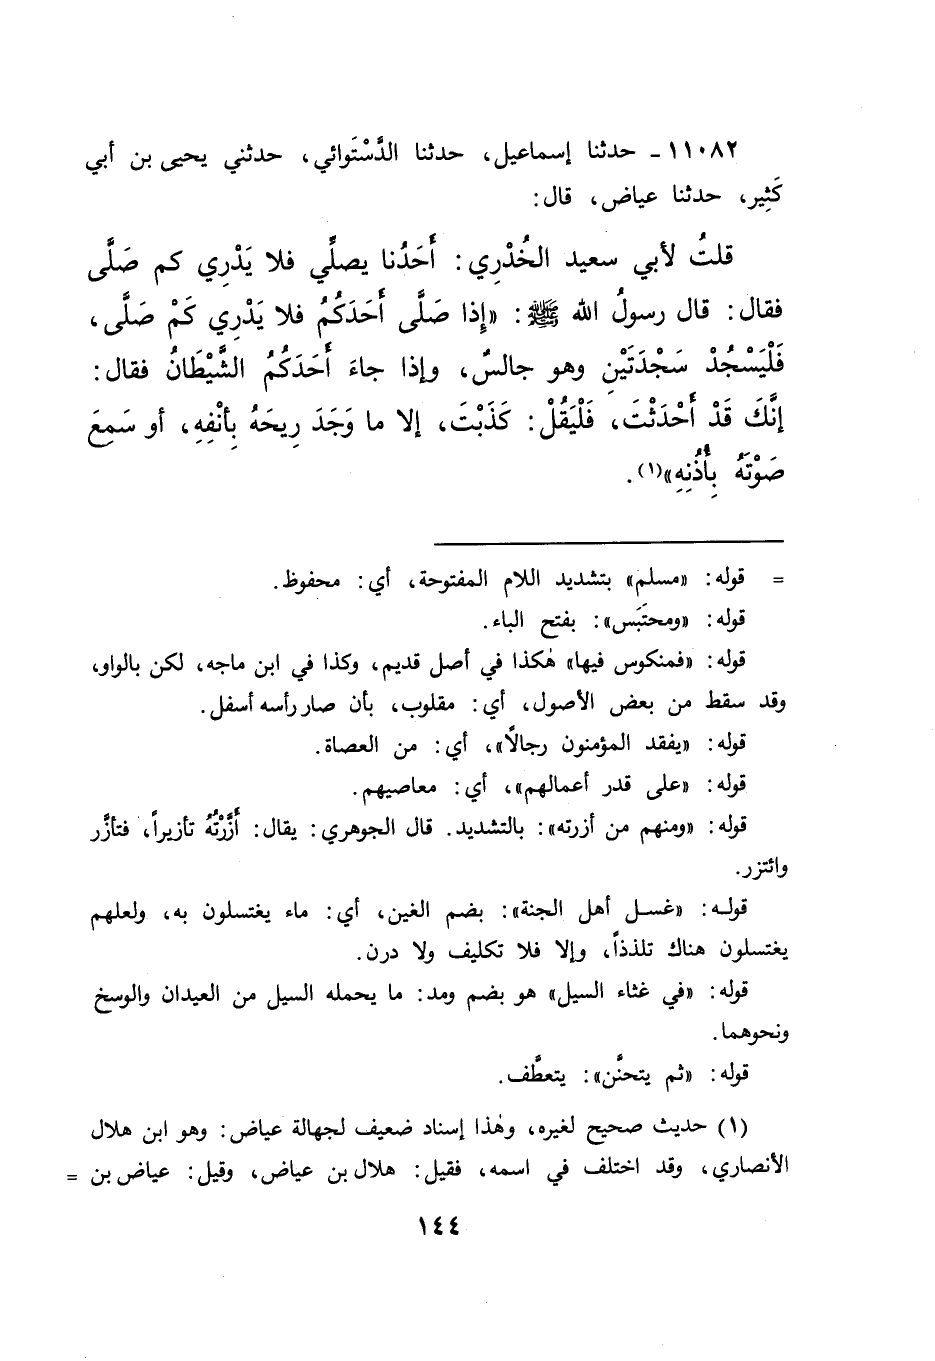 ١١٠٨٢ - حدثنا إسماعيل، حدثنا الدَّسْتَوائي، حدثني يحيى بن أبي
كَثِير، حدثنا عياض، قال:
قلتُ لأبي سعيد الخُدْرِي: أَحَدُنا يصلِّي فلا يَدْرِي كم صَلَّى
فقال: قال رسولُ الله ﷺ: «إِذا صَلَّى أَحَدَكُمُ فلا يَدْرِي كَمْ صَلَّى،
فَلْيَسْجُدْ سَجْدَتَيْنِ وهو جالسٌ، وإذا جاءَ أَحَدَكُمُ الشَّيْطَانُ فقال:
إنَّكَ قَدْ أَحْدَثْتَ، فَلْيَقُلْ: كَذَبْتَ، إلا ما وَجَدَ رِيحَهُ بِأنْفِهِ، أو سَمِعَ
صَوْتَهُ بِأُذُنِهِ»(١).
= قوله: «مسلم» بتشديد اللام المفتوحة، أي: محفوظ.
قوله: «ومحتبَس»: بفتح الباء.
قوله: «فمنكوس فيها» هٰكذا في أصل قديم، وكذا في ابن ماجه، لكن بالواو،
وقد سقط من بعض الأصول، أي: مقلوب، بأن صار رأسه أسفل.
قوله: «يفقد المؤمنون رجالاً»، أي: من العصاة.
قوله: «على قدر أعمالهم»، أي: معاصيهم.
قوله: «ومنهم من أزرته»: بالتشديد. قال الجوهري: يقال: أَزَّرْتُهُ تأزيراً، فتأزَّر
وائتزر.
قوله: «غسل أهل الجنة»: بضم الغين، أي: ماء يغتسلون به، ولعلهم
يغتسلون هناك تلذذاً، وإلا فلا تكليف ولا درن.
قوله: «في غثاء السيل» هو بضم ومد: ما يحمله السيل من العيدان والوسخ
ونحوهما.
قوله: «ثم يتحنَّن»: يتعطَّف.
(١) حديث صحيح لغيره، وهٰذا إسناد ضعيف لجهالة عياض: وهو ابن هلال
الأنصاري، وقد اختلف في اسمه، فقيل: هلال بن عياض، وقيل: عياض بن =
١٤٤